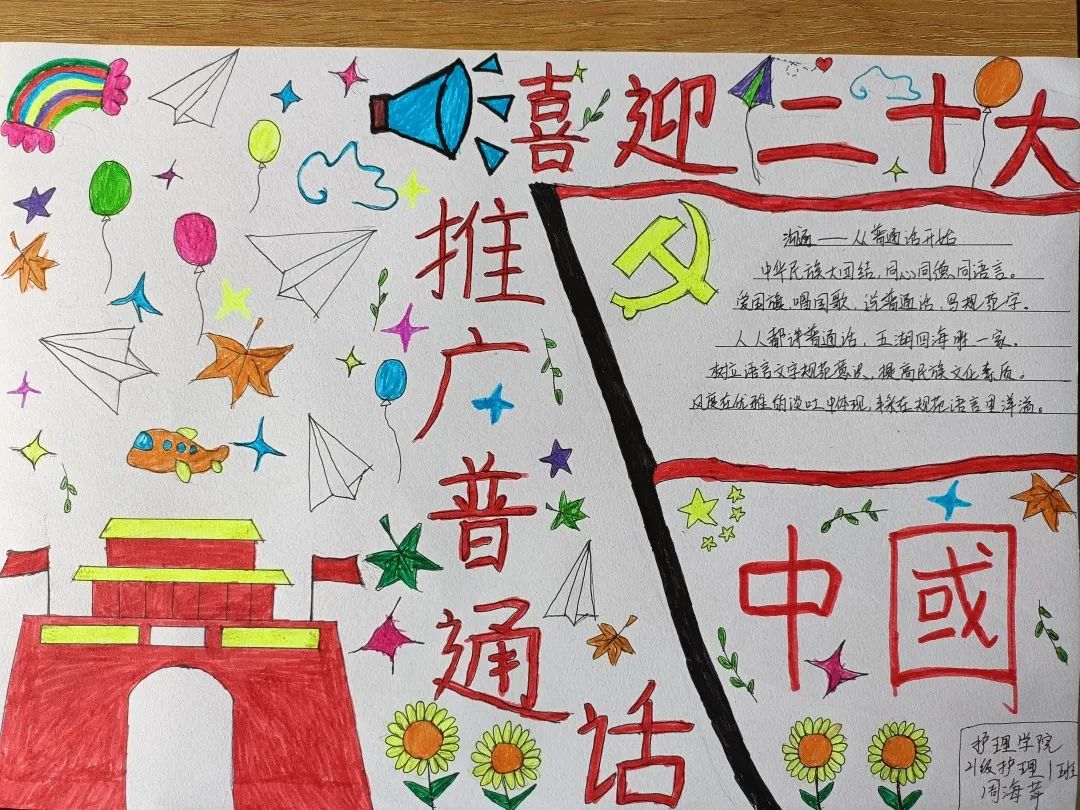 喜迎二十大
推广普通话
沟通——从普通话开始
中华民族大团结,同心同德同语言。
爱国旗,唱国歌,说普通话,写规范字。
人人都讲普通话,五湖四海胜一家。
树立语言文字规范意识,提高民族文化素质。
风度在优雅的谈吐中体现,幸福在规范语言里洋溢。
中國
护理学院
21级护理1班
周海苹